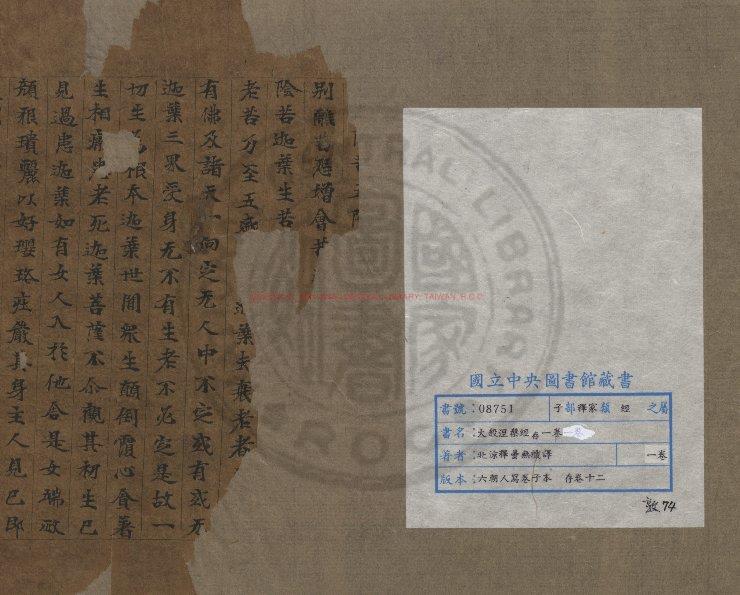 別離苦怨憎會苦
陰苦迦葉生苦
老苦乃至五盛
迦葉生衰老者
有佛及諸天一向定无人中不定或有或无
迦葉三界受身无不有生老不必定是故一
切生為根本迦葉世間眾生顛倒覆心貪著
生相厭患老死迦葉菩薩不尒觀其初生已
見過患迦葉如有女人入於他舍是女端政
顏狠瓌麗以好瓔珞莊嚴其身主人見已即
國立中央圖書館藏書
書號：08751 子部釋家類 經 之屬
書名：大般涅槃經存一卷
著者：北涼釋曇無讖譯 一卷
版本：六朝人寫卷子本 存卷十二
敦74